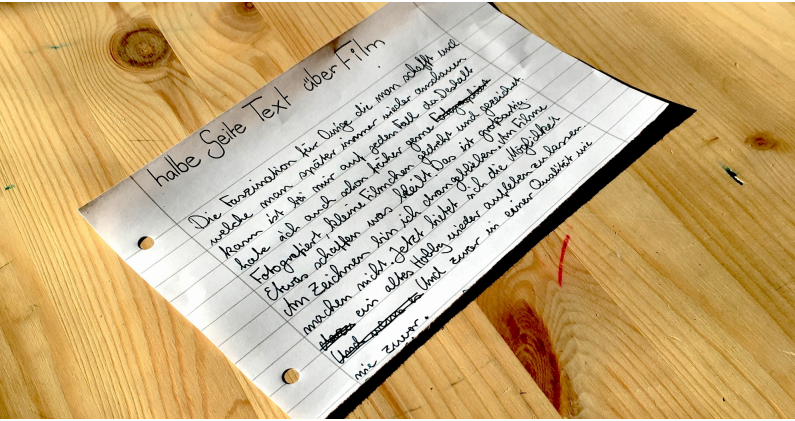 halbe Seite Text über Film
Die Faszination für Dinge die man schafft und
welche man später immer wieder anschauen
kann ist bei mir auf jeden Fall da. Deshalb
habe ich auch schon früher gerne
Fotografiert, kleine Filmchen gedreht und gezeichnet.
Etwas schaffen was bleibt. Das ist großartig
Am Zeichnen bin ich dran geblieben. Am Filme
machen nicht. Jetzt bietet sich die Möglichkeit
ein altes Hobby wieder aufleben zu lassen
Und zwar in einer Qualität wie
nie zuvor.